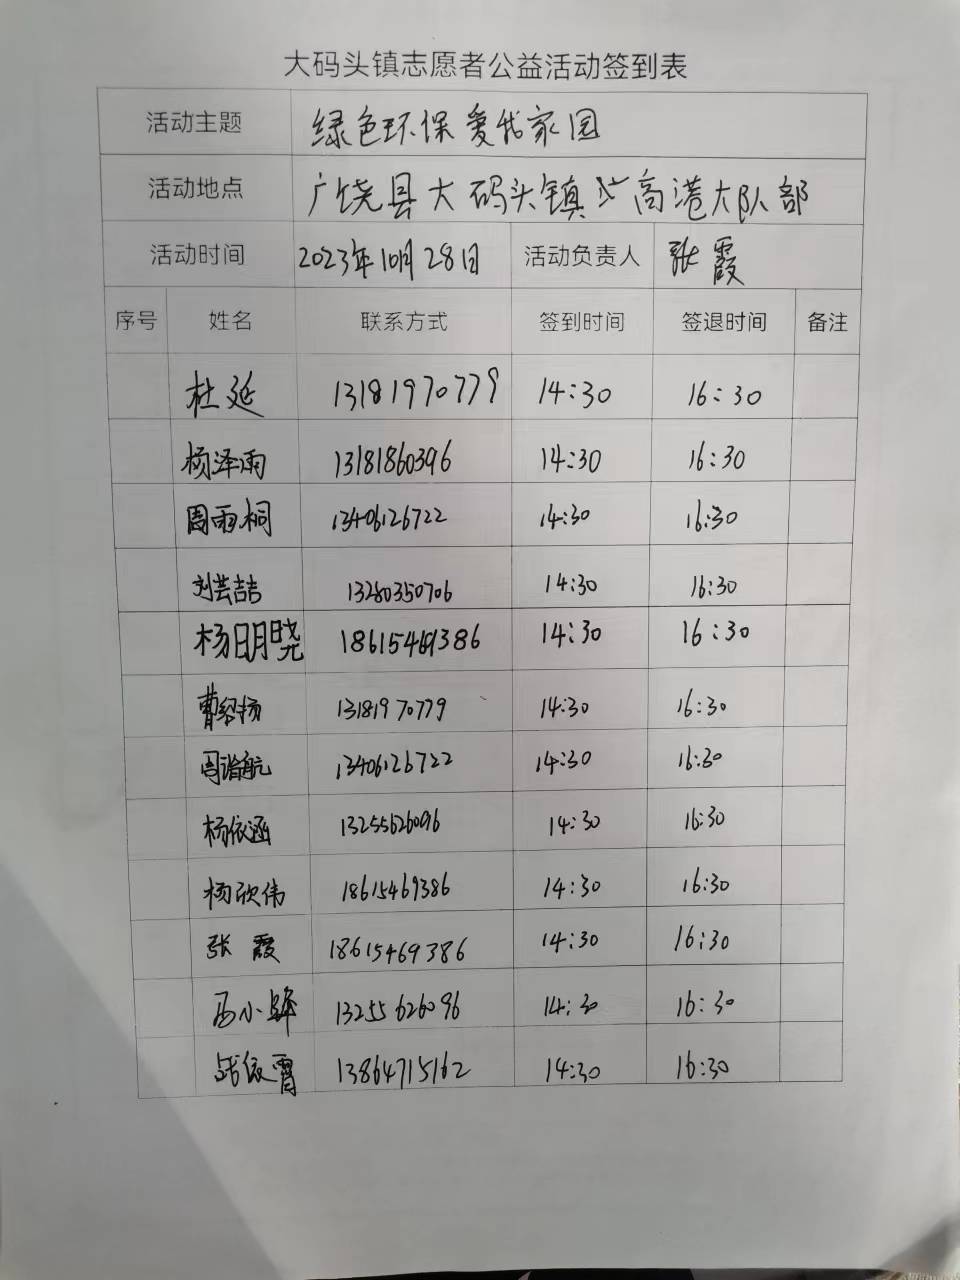 大码头镇志愿者公益活动签到表
活动主题 绿色环保 爱我家园
活动地点 广饶县大码头镇北高港大队部
活动时间 2023年10月28日 活动负责人 张霞
序号 姓名 联系方式 签到时间 签退时间 备注
杜延 13181970779 14:30 16:30
杨泽雨 13181860396 14:30 16:30
周雨桐 13406126722 14:30 16:30
刘芸喆 13280350706 14:30 16:30
杨明晓 18615469386 14:30 16:30
曹绍扬 13181970779 14:30 16:30
周诣航 13406126722 14:30 16:30
杨依涵 13255626096 14:30 16:30
杨欣伟 18615469386 14:30 16:30
张霞 18615469386 14:30 16:30
小 13255626096 14:30 16:30
依霄 13864715162 14:30 16:30